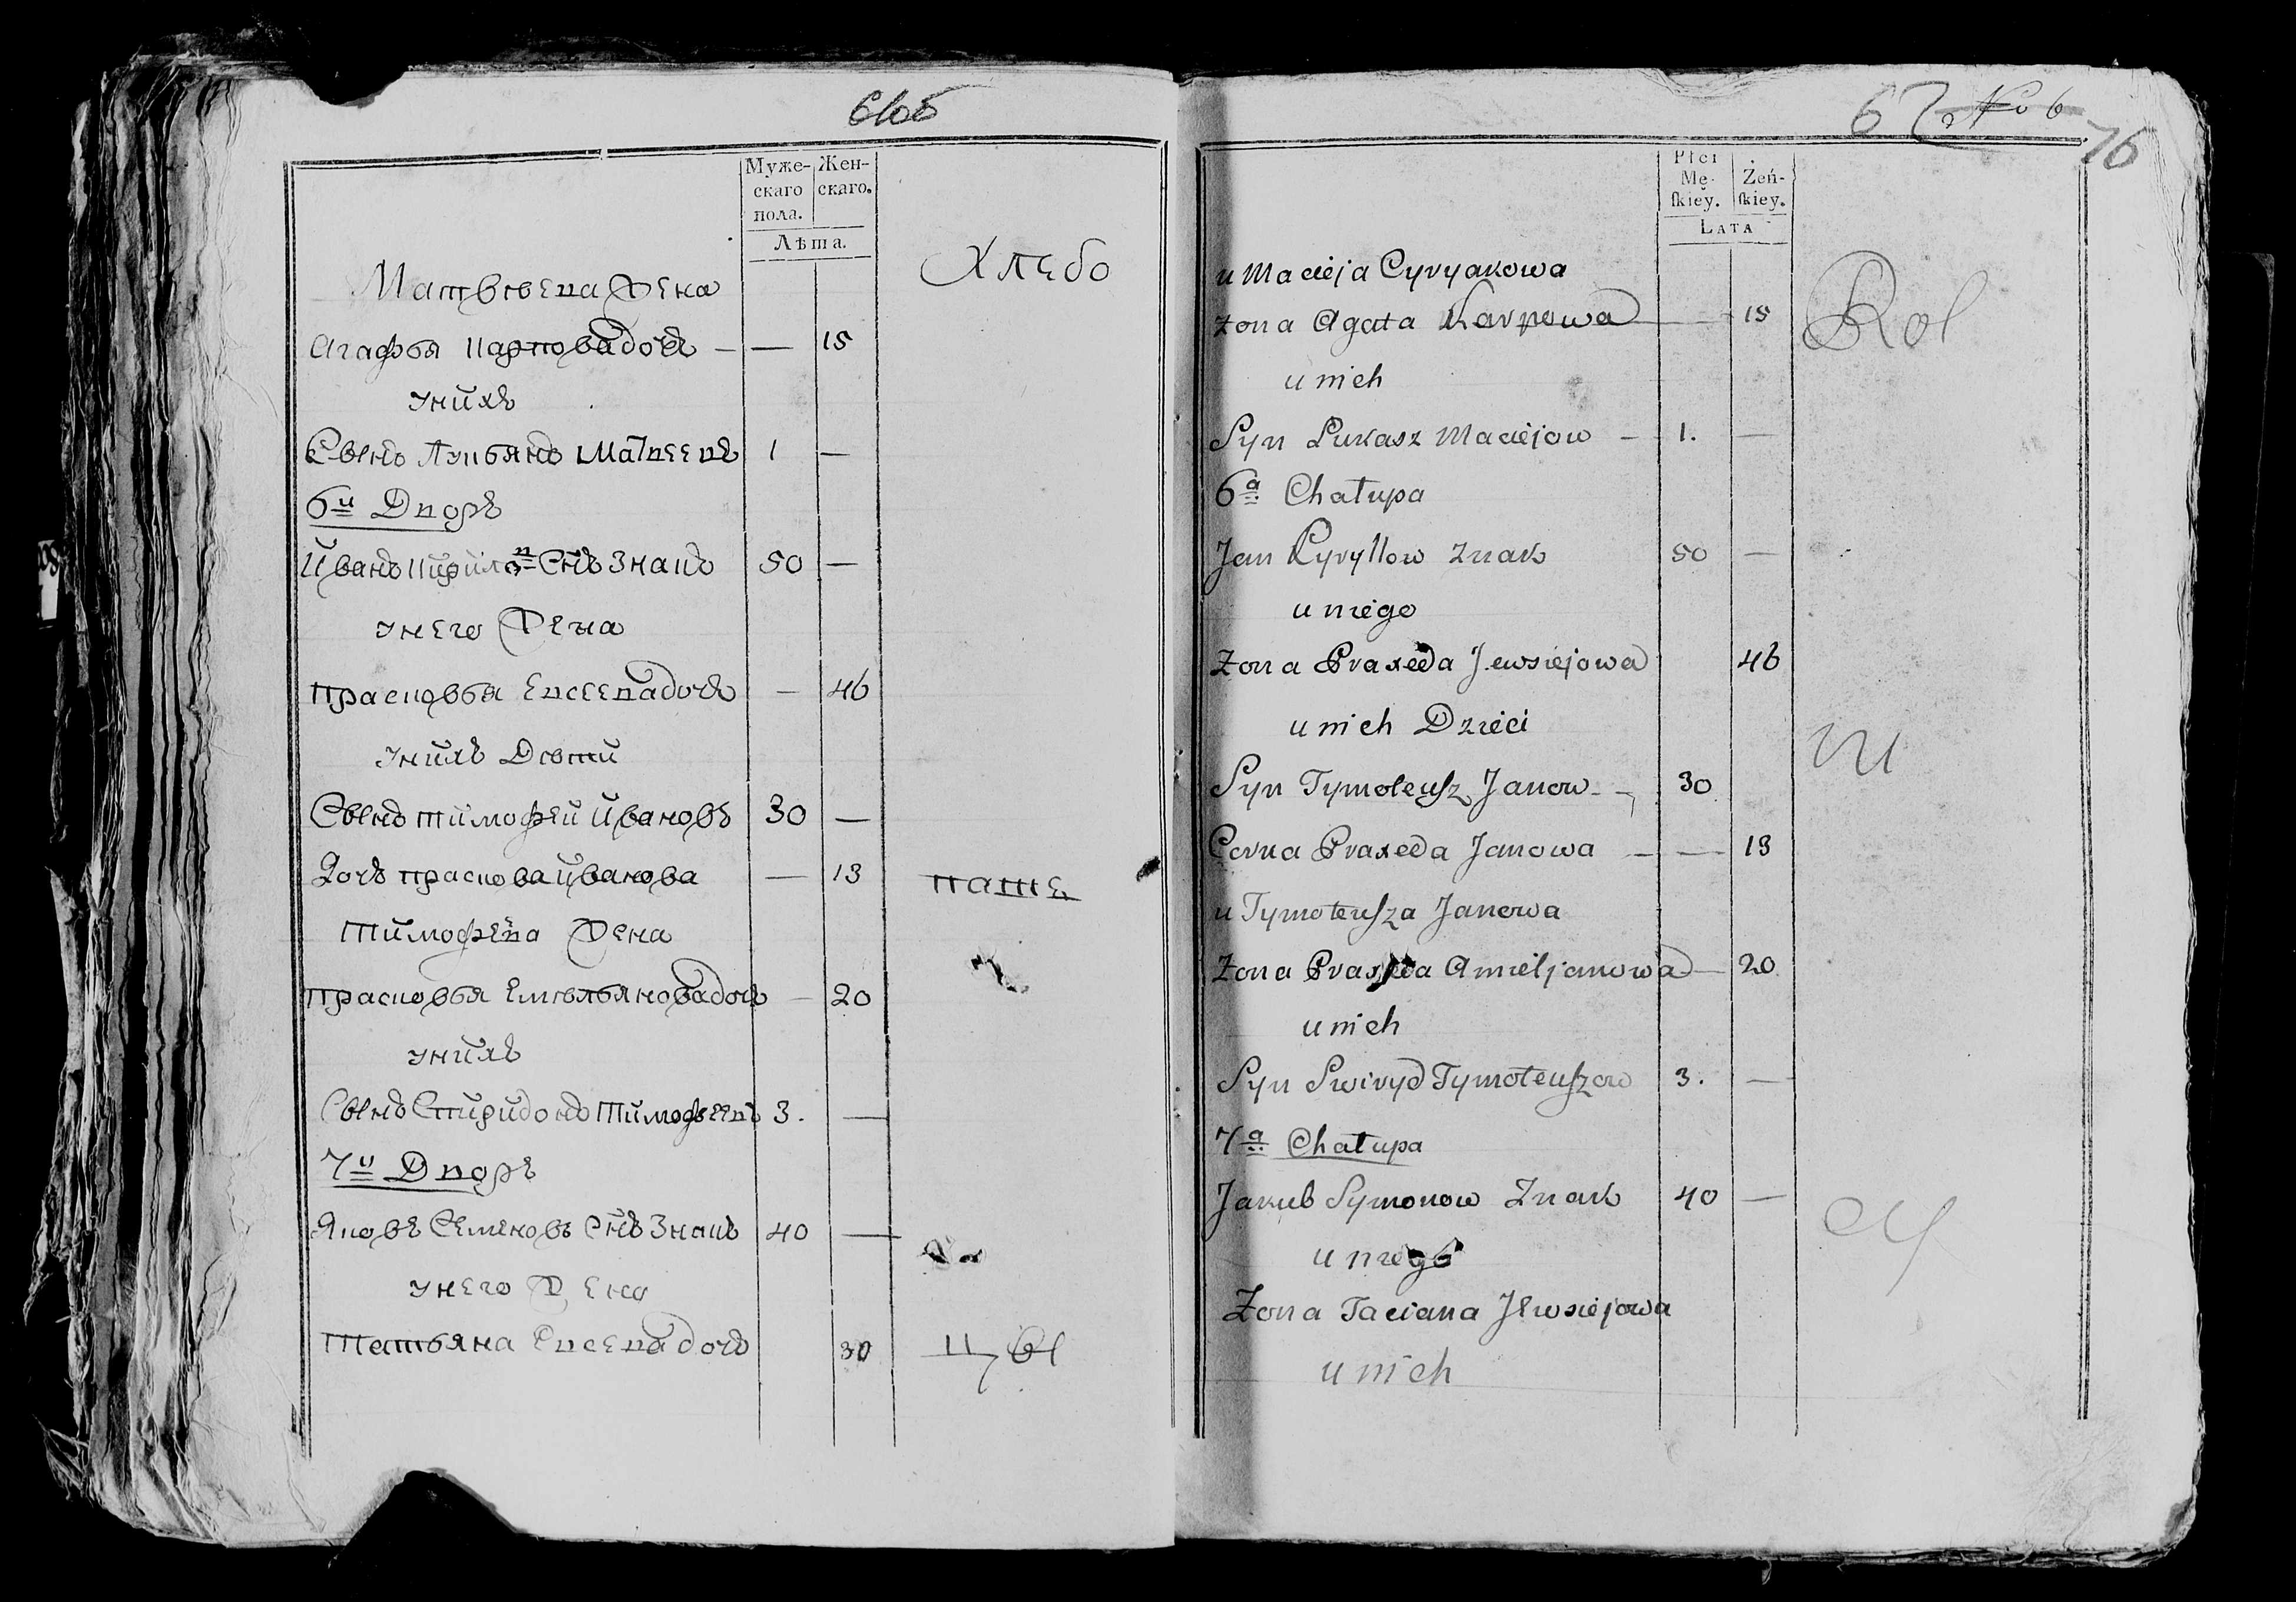 Муже-
скаго
пола.
Жен-
скаго.
Лѣта.
Матвѣева Жена
Агафья Карпова дочь — — 15
унихъ
Сынъ Лукьянъ Матвеевъ 1 —
6й Дворъ
Иванъ Кирилов Снъ Знакъ 50 —
унего Жена
Прасковья Евсеева дочь — 46
унихъ Дѣти
Сынъ Тимофей Ивановъ 30 —
Дочь Праскова Иванова — 13
Тимофѣева Жена
Прасковья Емельянова дочь — 20
унихъ
Сынъ Спиридонъ Тимофеевъ 3. —
7й Дворъ
Яковъ Семеновъ Снъ Знакъ 40 —
унего Жена
Татьяна Евсева дочь 30
Хлебо
паше
цы
67 No 6
76
Płci
Mę-
ſkiey.
Żeń-
ſkiey.
Lata
u Macieja Cyryakowa
Zona Agata Karpowa — 15
u nich
Syn Łukasz Maciejow — 1. —
6a Chałupa
Jan Kyryłłow Znak 50 —
u niego
Zona Praxeda Jewsiejowa 46
u nich Dzieci
Syn Tymoteuſz Janow — 30
Corka Praxeda Janowa — — 13
u Tymoteuſza Janowa
Zona Praxeda Amieljanowa — 20
u nich
Syn Swiryd Tymoteuſzow 3. —
7a Chałupa
Jakub Symonow Znak 40 —
u niego
Zona Taciana Jewsiejowa
u nich
Rol
ni
cy